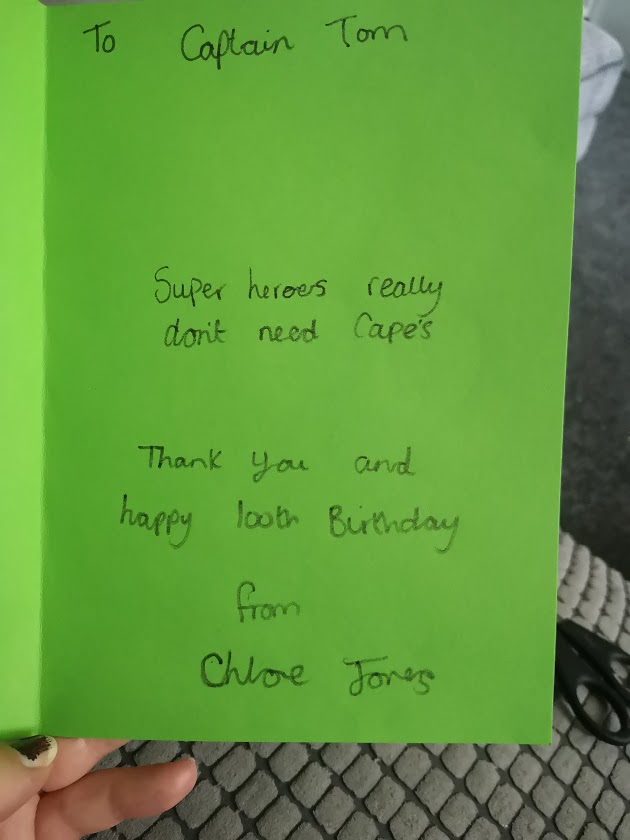 To Captain Tom
Super heroes really
don't need Cape's
Thank you and
happy 100th Birthday
from
Chloe Jones